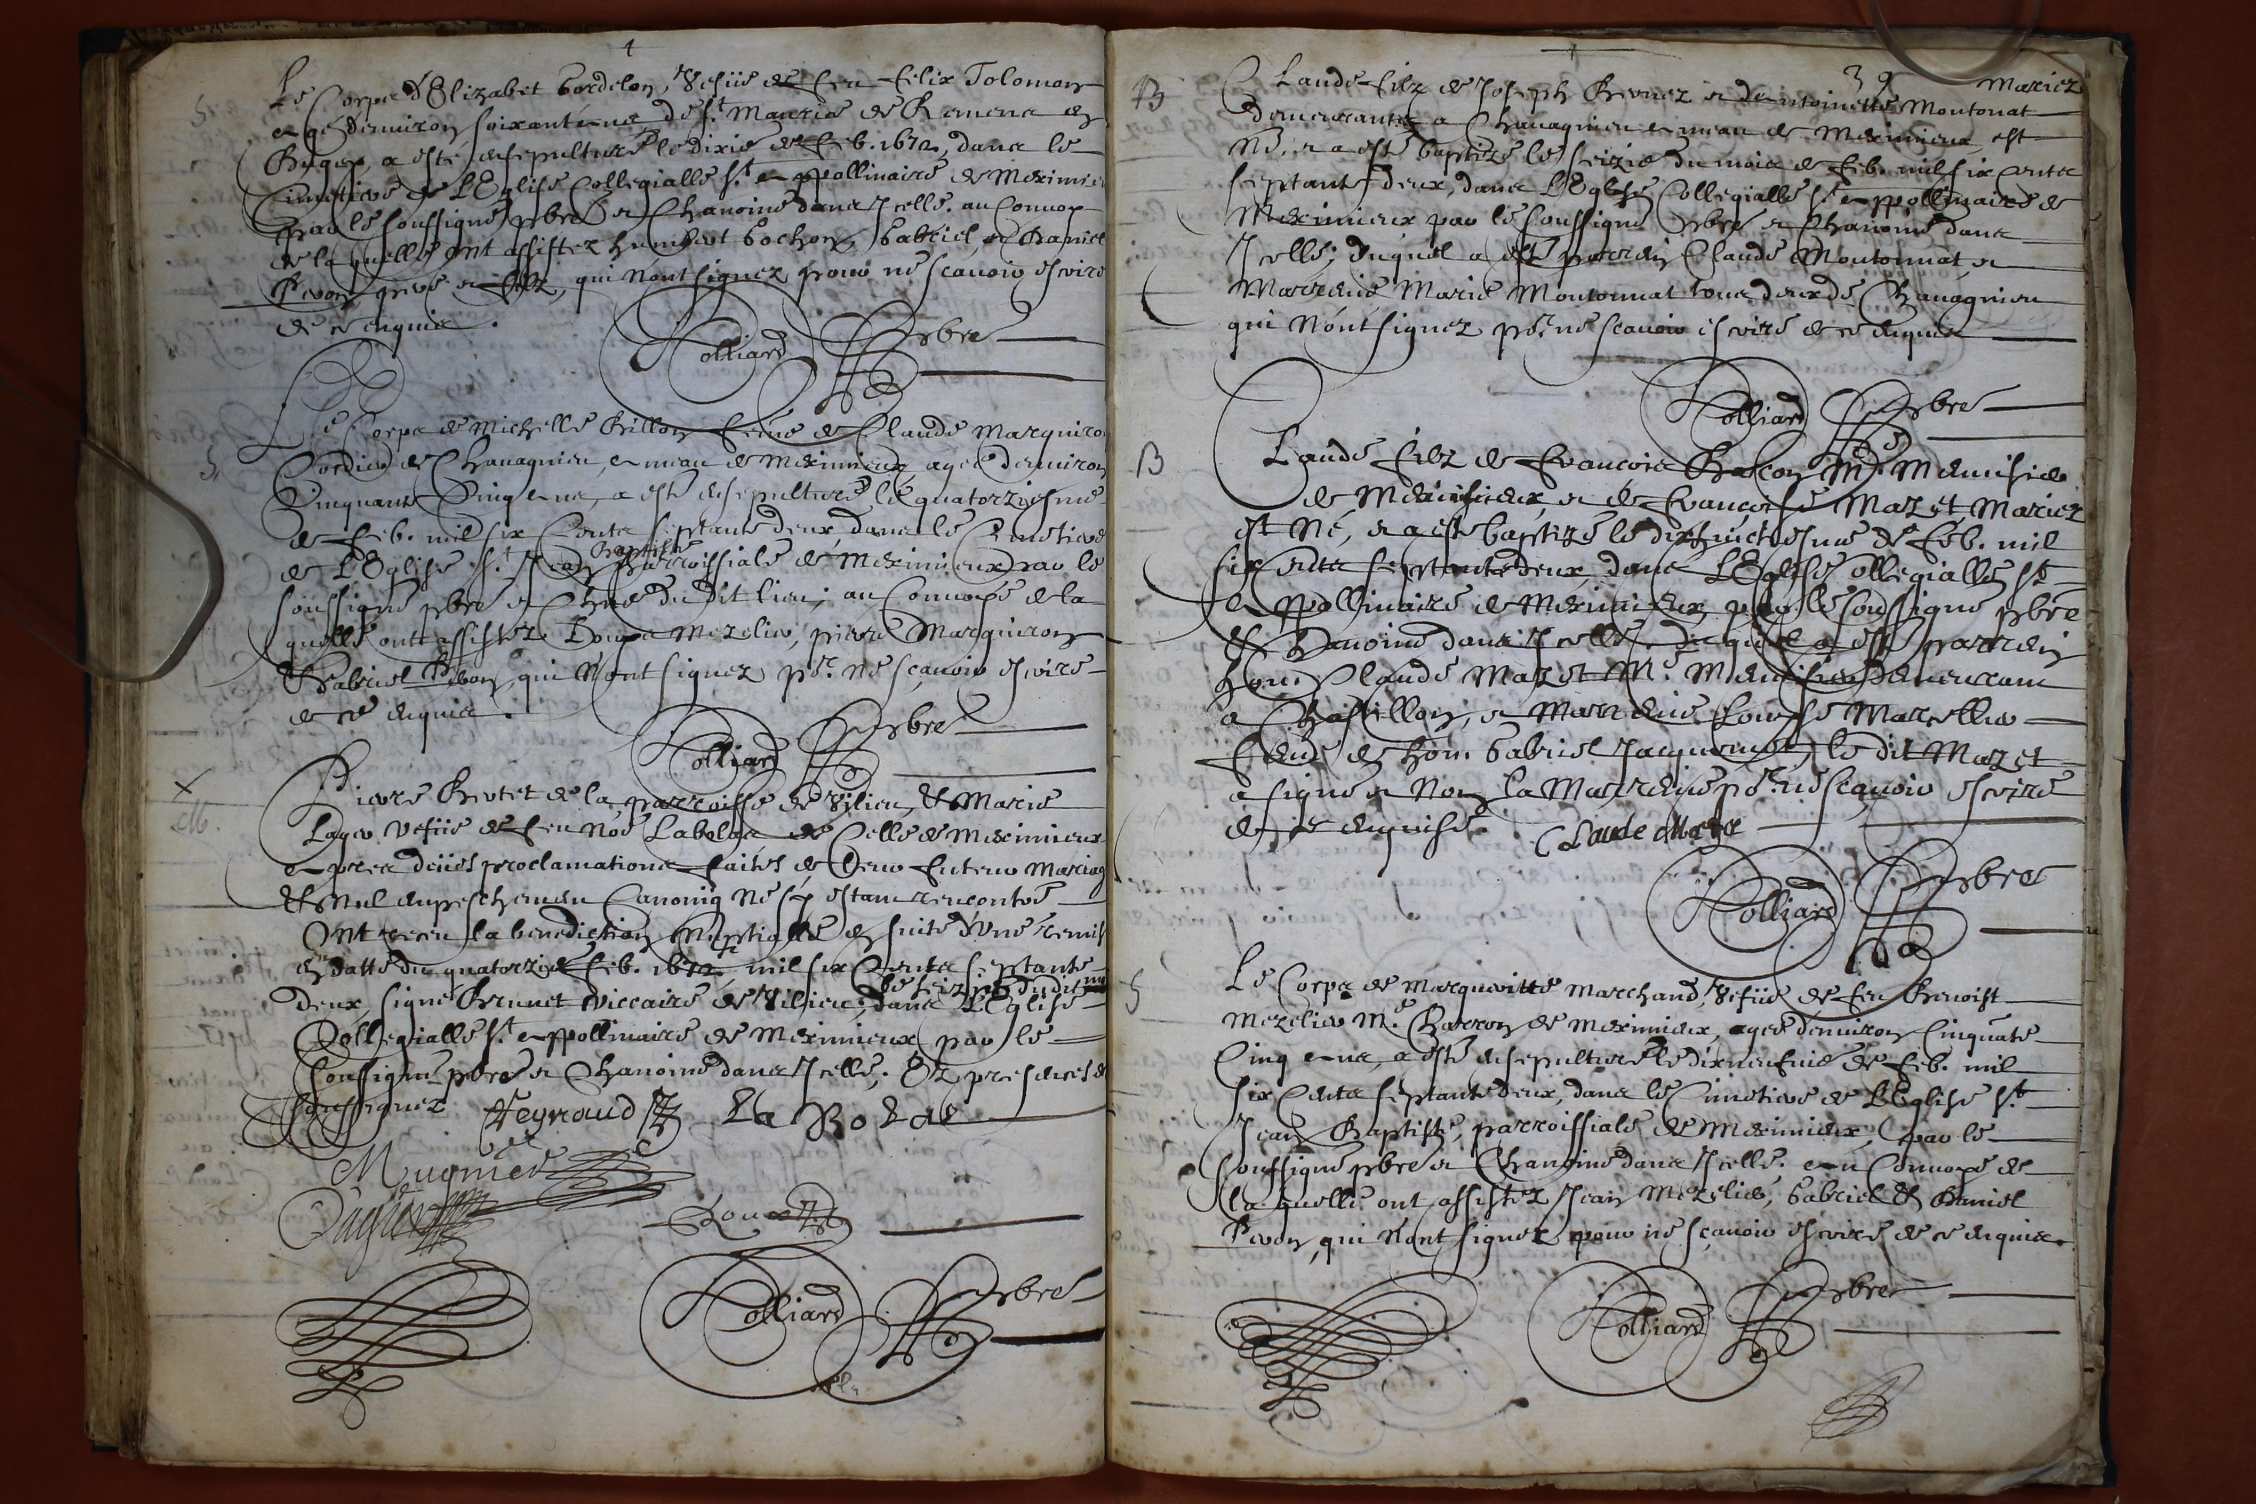 Le Corps d'Elizabet Bordelon, Vefüe de feu Felix Tolomon
agé d'environ soixant'ans de St. Mauris de Remens en
Bugey, a esté ensepulturé le dixie de Feb. 1672, dans le
Cimetiere de L'Eglise Collegialle St. Appollinaire de Meximieu
par le soussigné pbre et Chanoine dans Icelle. au Convoy
de laquelle ont assistez humbert Bochon, Gabriel, et Daniel
Pivon pere et filz, qui n'ont signez pour ne scavoir escrire
de ce enquis.
Rolliard pbre
Le Corps de Michelle Billon feme de Claude Marquiron
Cordier de Chavagnieu, hameau de Meximieux, agée d'environ
Cinquante Cinq ans, a esté ensepulturé le quatorziesme
de Feb. mil six Cents septante deux, dans le Cimetiere
de L'Eglise St. Jean Baptiste Parroissiale de Meximieux par le
soussigné pbre et Chne du dit lieu; au Convoye de la
quelle ont assistez Louys Mezelier, pierre Marquiron
et Gabriel Pivon, qui n'ont signez pr. ne sçavoir escrire
de ce enquis.
Rolliard pbre
M.
Pierre Brotet de la parroisse de Vilieu, et Marie
Lager Vefüe de feu Noe Labolas de Celle de Meximieux
apres deües proclamations faites de leur futeur Mariag
et Nul enpeschement Canoniq ne s'y estant rencontré
Ont receu la benediction Nuptialle en suite d'une remis
en datte du quatorzie Feb. 1672, mil six Cents septante
deux, signé Brunet viccaire de Vilieu; le seizie dudit dans L'Eglise
Collegialle St. Appollinaire de Meximieux par le
soussigné pbre et Chanoine dans Icelle; Ez presences de
soussignez Feynaud La Bolae
Mugnier
Roux
Rolliard pbre
39
Mariez
B
Claude filz de Joseph Brevnez et d'antoinette Montonat
demeurants a Chavagnieu hameau de Meximieux est
Né, et a esté baptizé le seizie du mois de Feb. mil six Cents
septante deux, dans L'Eglise Collegialle St. Appollinaire de
Meximieux par le soussigné Pbre et Chanoine dans
Icelle; duquel a esté parrein Claude Montonnat et
Marreine Marie Montonnat tous deux de Chavagnieu
qui n'ont signez pr. ne scavoir escrire de ce enquis
Rolliard pbre
B
Claude filz de Francois Bacon Me. Menuisier
de Meximieux, et de Francoise Mazet, Mariez
est Né, et a esté baptizé le dixhuictiesme de Feb. mil
six cents septante deux, dans L'Eglise Collegialle St.
Appollinaire de Meximieux, par le soussigné pbre
et Chanoine dans Icelle, duquel a esté parrein
hon. Claude Mazet Me. Menuisier demeurant
a Chastillon, et Marreine Louyse Marcellier
feme de hon. Gabriel Jacquemet, le dit Mazet
a signé et Non la Marreine pr. ne sçavoir escrire
de ce enquise. Claude Mazet
Rolliard pbre
S
Le Corps de Margueritte Marchand, Vefüe de feu Benoist
Mezelier Me. Charron de Meximieux, agée d'environ Cinquate
Cinq ans, a esté ensepulturé le dixneufvie de Feb. mil
six Cents septante deux, dans le Cimetiere de L'Eglise St.
Jean Baptiste, parroissiale de Meximieux, par le
soussigné pbre et Chanoine dans Icelle. au Convoye de
la quelle ont assistez Jean Mezelier, Gabriel et Daniel
Pivon, qui n'ont signez pour ne sçavoir escrire de ce enquis.
Rolliard pbre